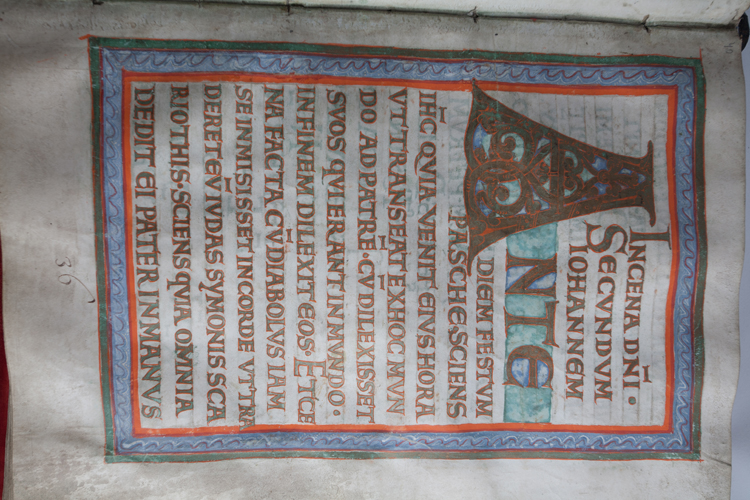 IN CENA DNI·
SECVNDVM
IOHANNEM
ANTE
DIEM FESTVM
PASCHE·SCIENS
IHC QVIA VENIT EIVS HORA
VT TRANSEAT EX HOC MVN
DO AD PATRE·CV DILEXISSET
SVOS QVI ERANT IN MVNDO·
IN FINEM DILEXIT EOS· ET CE
NA FACTA·CV DIABOLVS IAM
SE INMISISSET IN CORDE VT TRA
DERET EV IVDAS SYMONIS SCA
RIOTHIS·SCIENS QVIA OMNIA
DEDIT EI PATER IN MANVS
36